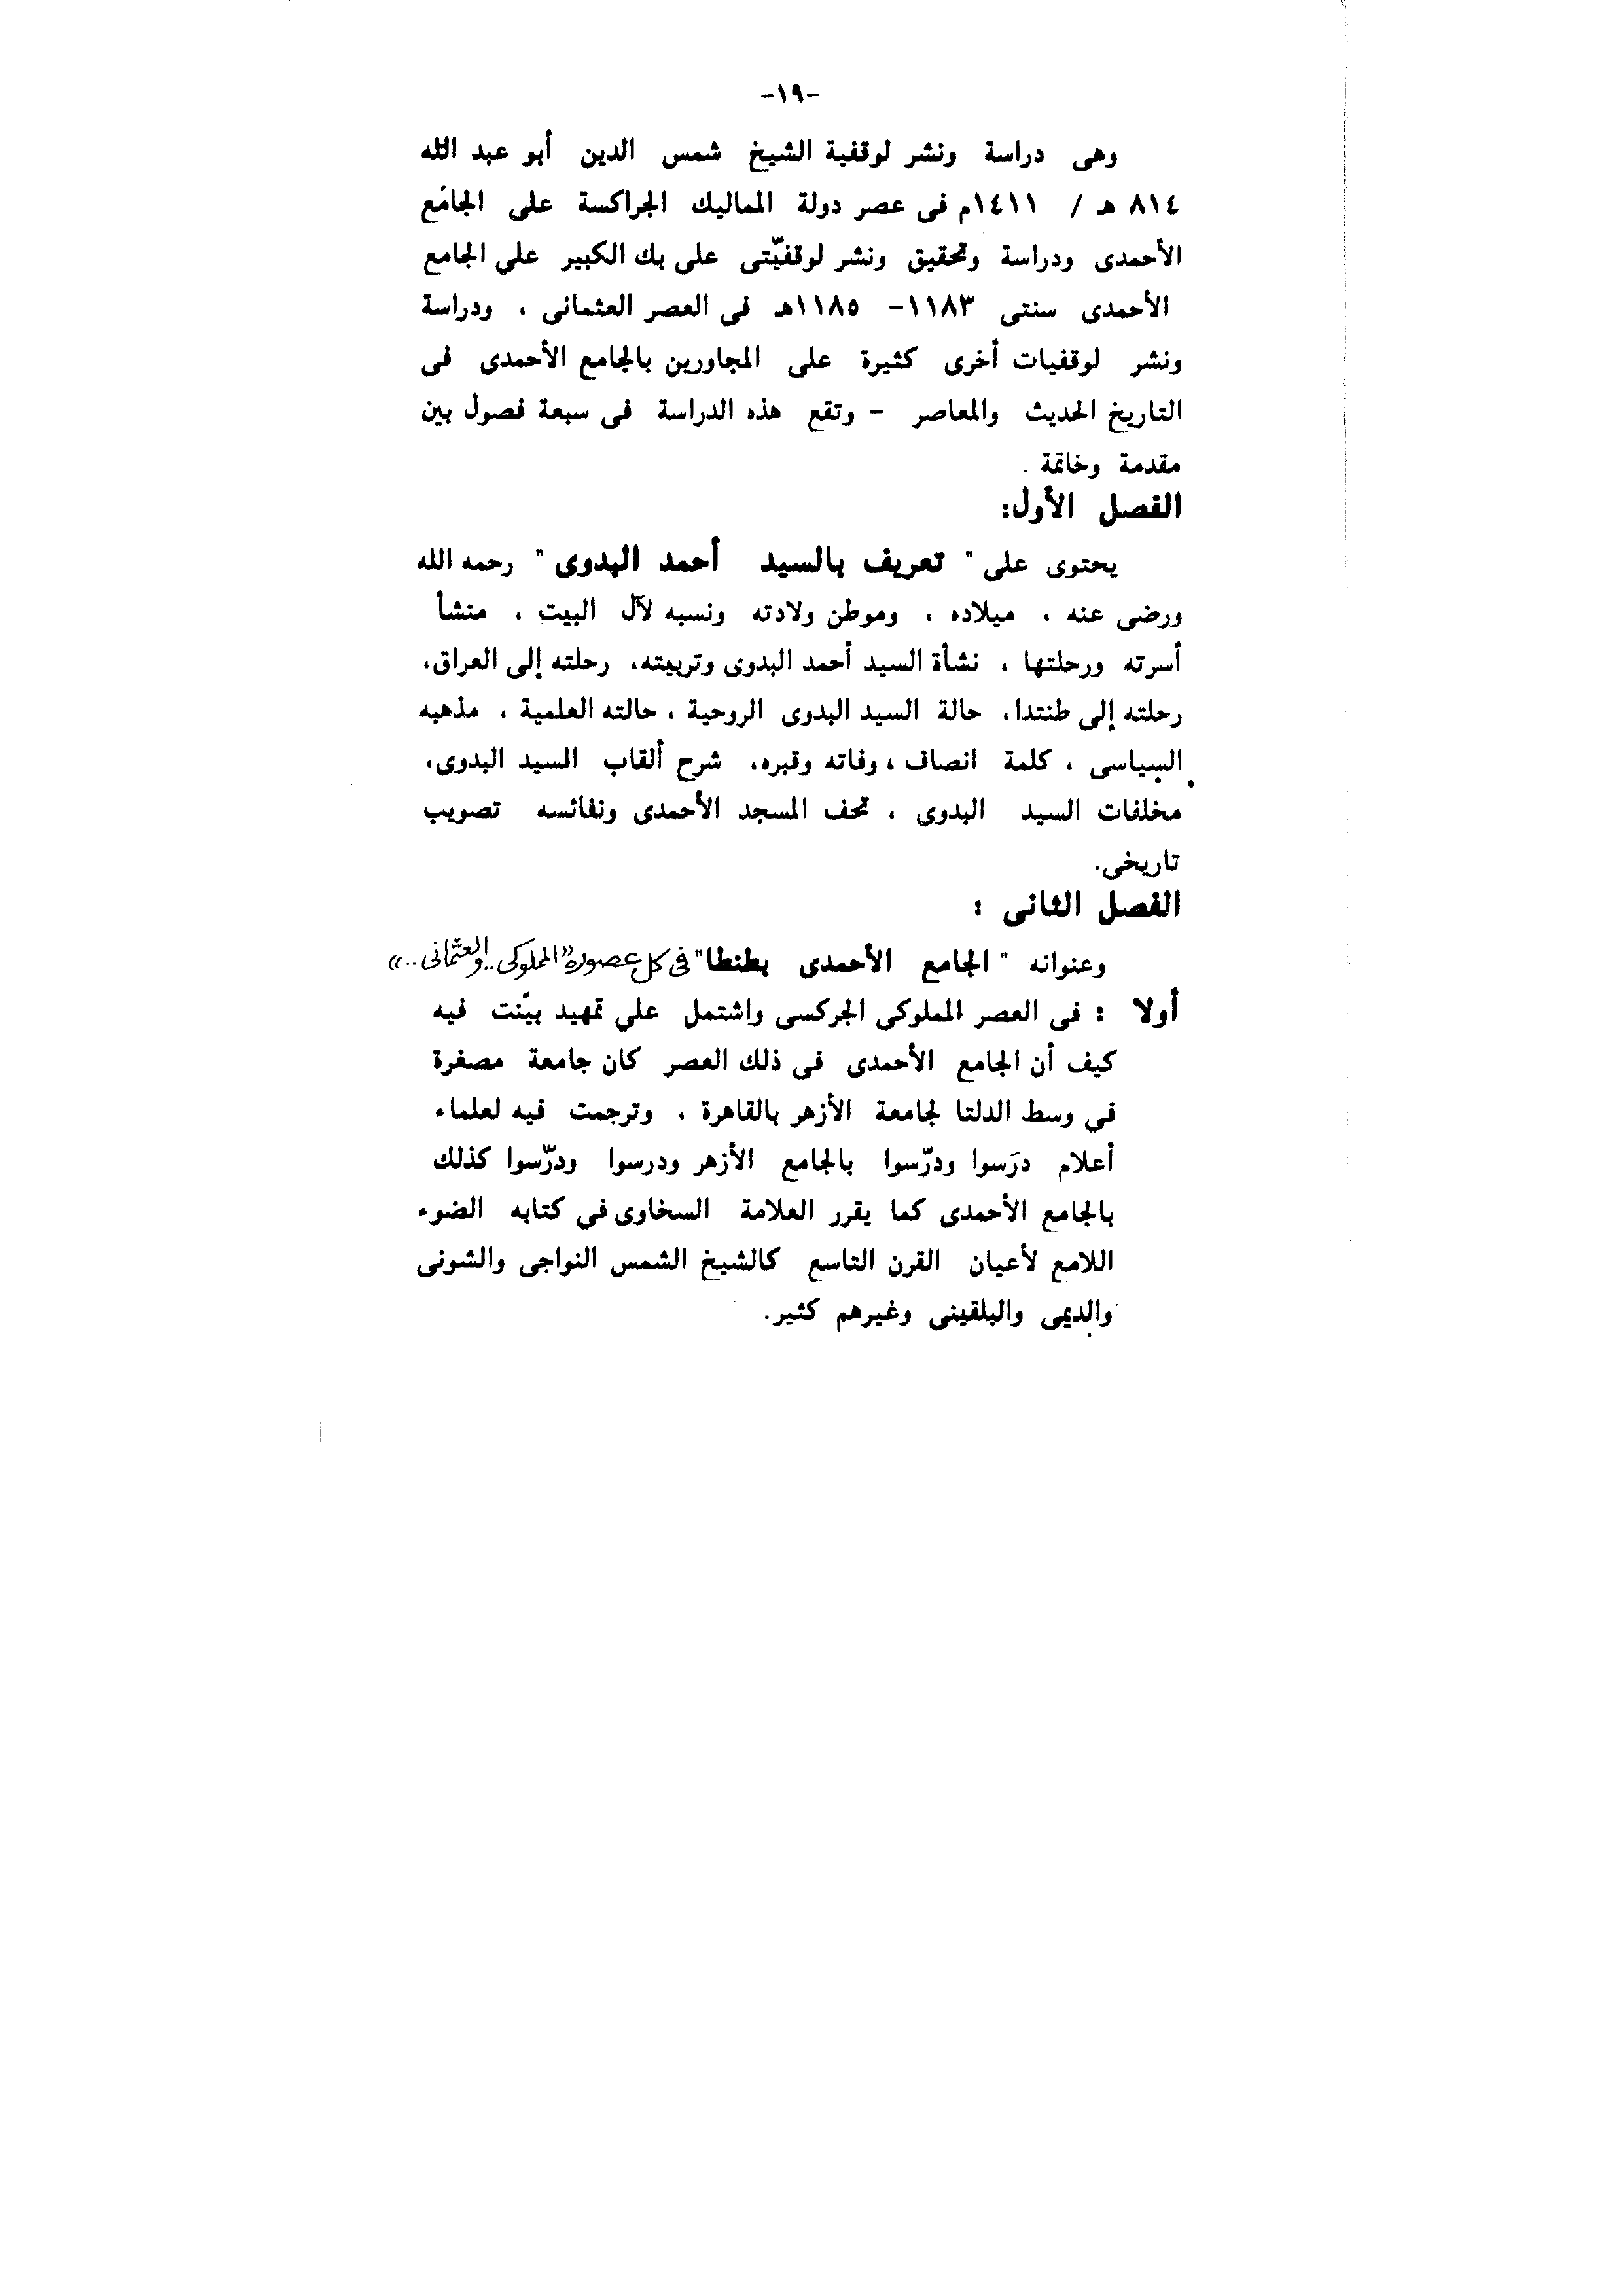 -١٩-
وهى دراسة ونشر لوقفية الشيخ شمس الدين أبو عبد الله
٨١٤ هـ / ١٤١١م فى عصر دولة المماليك الجراكسة على الجامع
الأحمدى ودراسة وتحقيق ونشر لوقفيّتى على بك الكبير علي الجامع
الأحمدى سنتى ١١٨٣- ١١٨٥هـ فى العصر العثمانى ، ودراسة
ونشر لوقفيات أخرى كثيرة على المجاورين بالجامع الأحمدى فى
التاريخ الحديث والمعاصر - وتقع هذه الدراسة فى سبعة فصول بين
مقدمة وخاتمة .
الفصل الأول:
يحتوى على " تعريف بالسيد أحمد البدوى " رحمه الله
ورضى عنه ، ميلاده ، وموطن ولادته ونسبه لآل البيت ، منشأ
أسرته ورحلتها ، نشأة السيد أحمد البدوى وتربيته، رحلته إلى العراق،
رحلته إلى طنتدا، حالة السيد البدوى الروحية ، حالته العلمية ، مذهبه
السياسى ، كلمة انصاف ، وفاته وقبره، شرح ألقاب السيد البدوى،
مخلفات السيد البدوى ، تحف المسجد الأحمدى ونفائسه تصويب
تاريخى.
الفصل الثانى :
وعنوانه " الجامع الأحمدى بطنطا" فى كل عصوره «المملوكى..والعثمانى..»
أولا : فى العصر المملوكى الجركسى واشتمل علي تمهيد بيّنت فيه
كيف أن الجامع الأحمدى فى ذلك العصر كان جامعة مصغرة
في وسط الدلتا لجامعة الأزهر بالقاهرة ، وترجمت فيه لعلماء
أعلام درَسوا ودرّسوا بالجامع الأزهر ودرسوا ودرّسوا كذلك
بالجامع الأحمدى كما يقرر العلامة السخاوى في كتابه الضوء
اللامع لأعيان القرن التاسع كالشيخ الشمس النواجى والشونى
والديمى والبلقينى وغيرهم كثير.